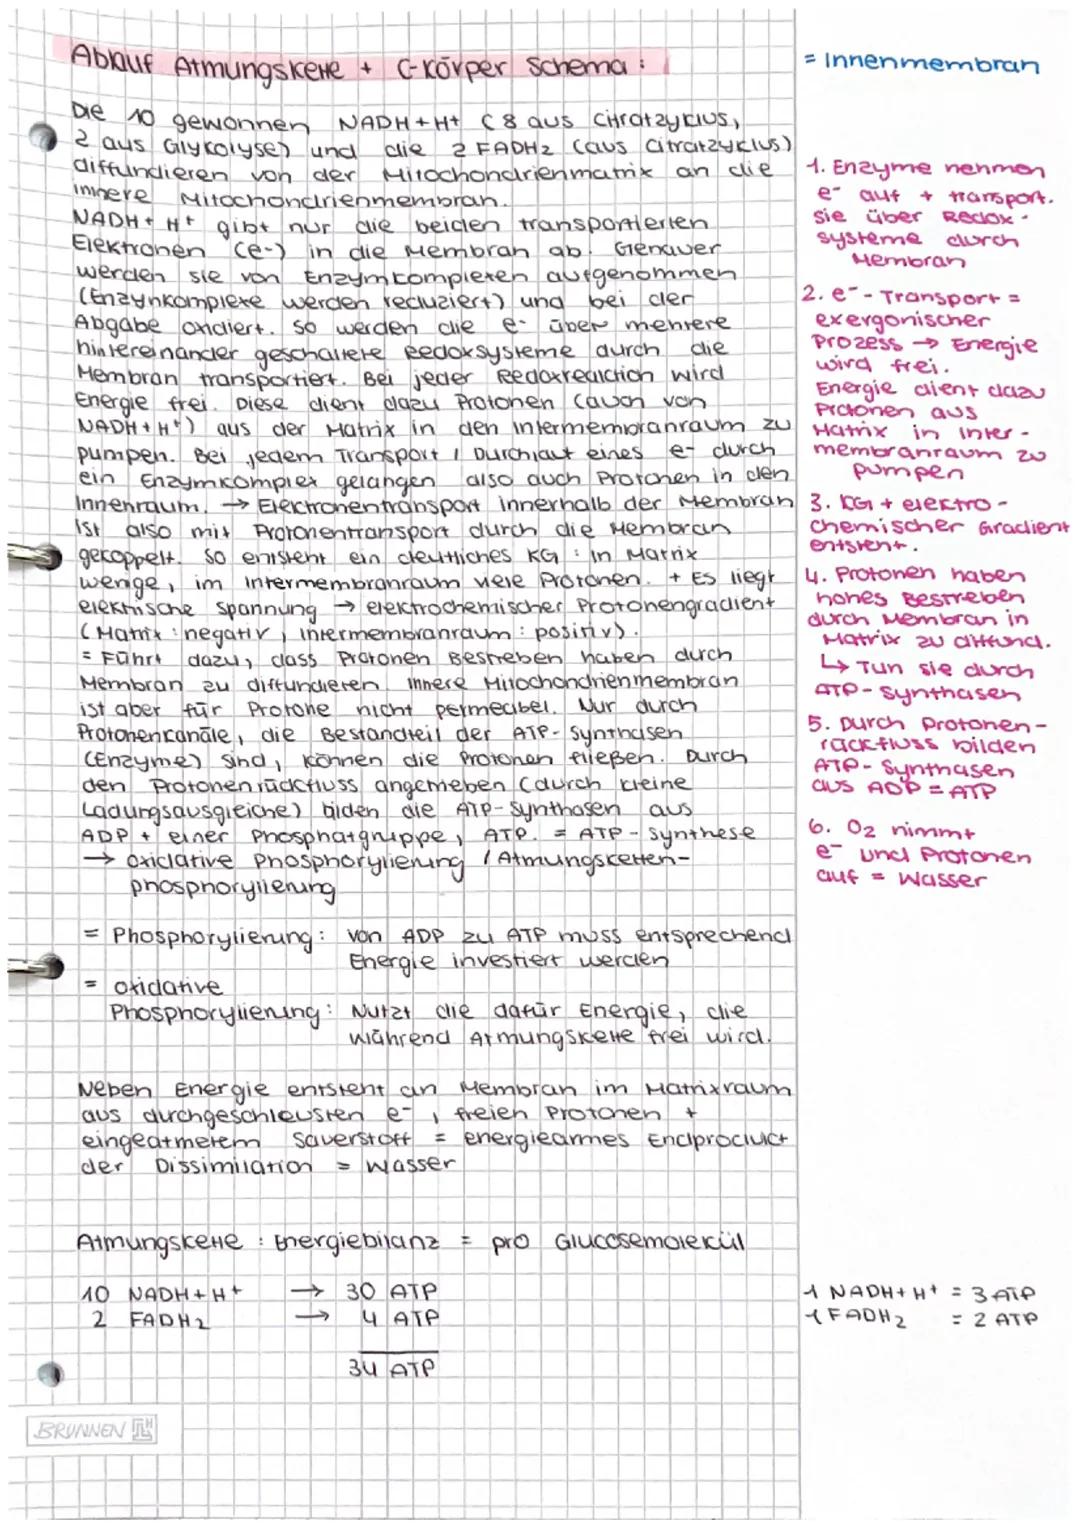 Ablauf Atmungskette + C-Körper Schema:
= Innenmembran
Die 10 gewonnen NADH+H+ (8 aus Citratzyklus,
2 aus Glykolyse) und die 2 FADH2 (aus Citratzyklus)
diffundieren von der Mitochondrienmatrix an die
innere Mitochondrienmembran.
NADH+H+ gibt nur die beiden transportierten
Elektronen (e-) in die Membran ab. Genauer
werden sie von Enzymkomplexen aufgenommen
(Enzynkomplexe werden reduziert) und bei der
Abgabe oxidiert. So werden die e- über mehrere
hintereinander geschaltete Redoxsysteme durch die
Membran transportiert. Bei jeder Redoxreaktion wird
Energie frei. Diese dient dazu Protonen (auch von
NADH+H+) aus der Matrix in den Intermembranraum zu
pumpen. Bei jedem Transport / Durchlauf eines e- durch
ein Enzymkomplex gelangen also auch Protonen in den
Innenraum. → Elektronentransport innerhalb der Membran
ist also mit Protonentransport durch die Membran
gekoppelt. So entsteht ein deutliches KG : In Matrix
wenige, im Intermembranraum viele Protonen. + Es liegt
elektrische Spannung → elektrochemischer Protonengradient
(Matrix : negativ, Intermembranraum : positiv).
= Führt dazu, dass Protonen Bestreben haben durch
Membran zu diffundieren. Innere Mitochondrienmembran
ist aber für Protone nicht permeabel. Nur durch
Protonenkanäle, die Bestandteil der ATP-Synthasen
(Enzyme) sind, können die Protonen fließen. Durch
den Protonenrückfluss angetrieben (durch kleine
Ladungsausgleiche) bilden die ATP-Synthasen aus
ADP + einer Phosphatgruppe, ATP. = ATP-Synthese
→ oxidative Phosphorylierung / Atmungsketten-
phosphorylierung
= Phosphorylierung: von ADP zu ATP muss entsprechend
Energie investiert werden
= oxidative
Phosphorylierung: Nutzt die dafür Energie, die
während Atmungskette frei wird.
Neben Energie entsteht an Membran im Matrixraum
aus durchgeschleusten e-, freien Protonen +
eingeatmetem Sauerstoff = energiearmes Endprodukt
der Dissimilation = Wasser
Atmungskette : Energiebilanz = pro Glucosemolekül
10 NADH+H+ → 30 ATP
2 FADH2 → 4 ATP
34 ATP
BRUNNEN
1. Enzyme nehmen
e- auf + transport.
sie über Redox-
systeme durch
Membran
2. e- - Transport =
exergonischer
Prozess → Energie
wird frei.
Energie dient dazu
Protonen aus
Matrix in Inter-
membranraum zu
pumpen
3. KG + elektro-
chemischer Gradient
entsteht.
4. Protonen haben
hohes Bestreben
durch Membran in
Matrix zu diffund.
↳ Tun sie durch
ATP-Synthasen
5. Durch Protonen-
rückfluss bilden
ATP-Synthasen
aus ADP = ATP
6. O2 nimmt
e- und Protonen
auf = Wasser
1 NADH+H+ = 3 ATP
1 FADH2 = 2 ATP